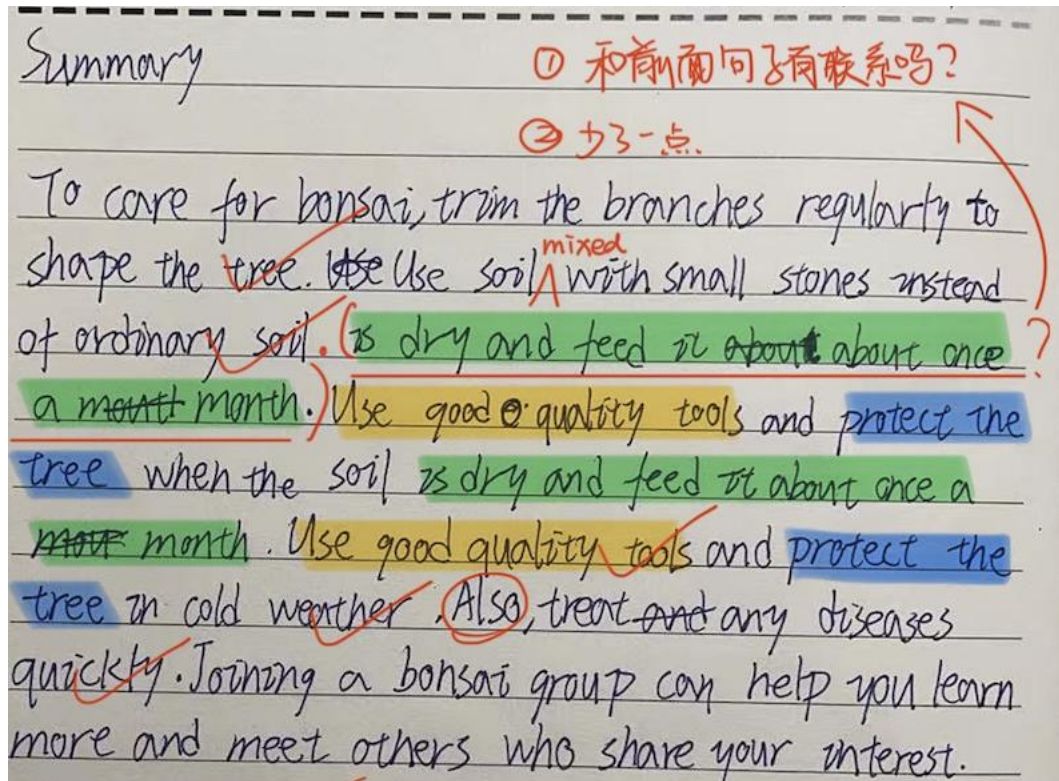 Summary
① 和前面句子有联系吗?
② 少了一点
To care for bonsai, trim the branches regularly to
shape the tree. Use Use soil mixed with small stones instead
of ordinary soil. (is dry and feed it about about once ?
a mouth month.) Use good quality tools and protect the
tree when the soil is dry and feed it about once a
month. Use good quality tools and protect the
tree in cold weather. Also, treat and any diseases
quickly. Joining a bonsai group can help you learn
more and meet others who share your interest.